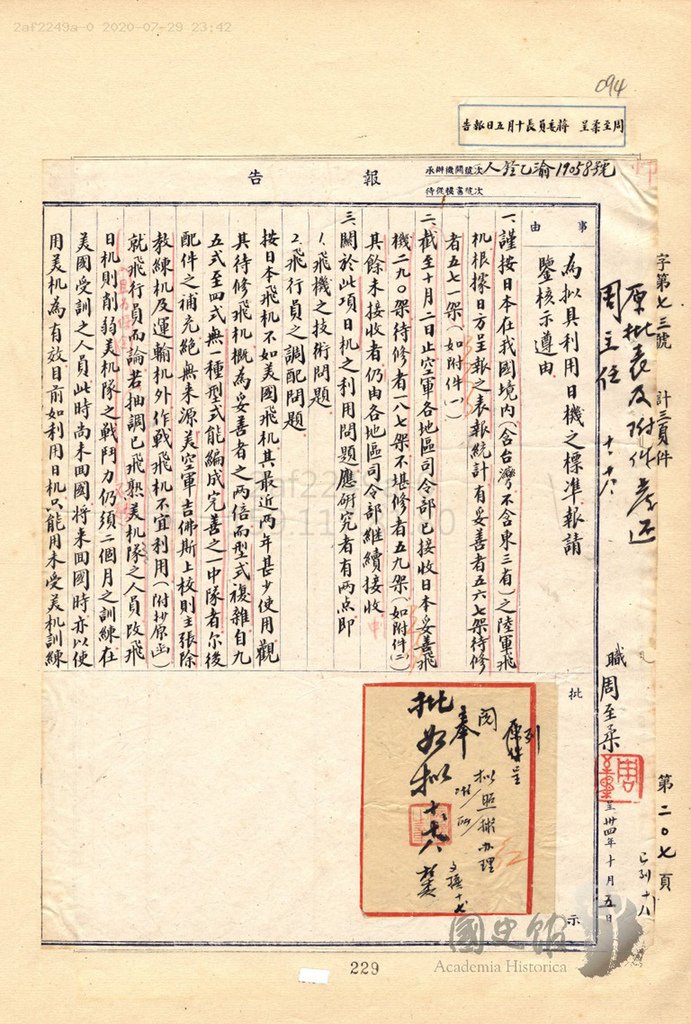 2af2249a-0 2020-07-29 23:42
094
周至柔呈 蔣委員長十月五日報告
報告
承辦機關號次 人鈴乙渝19058號
待從檔案號次
字第七三號 計三頁件 第二0七頁
原批表及附件存还
周主任 十、十八
職周至柔
呈 卅四年十月五日
已列十八
事由
為拟具利用日機之標準報請
鑒核示遵由
批示
一、謹按日本在我國境內(含台灣不含東三省)之陸軍飛
机根據日方呈報之表報統計有妥善者五六七架待修
者五七一架(如附件一)
二、截至十月二日止空軍各地區司令部已接收日本妥善飛
機二九0架待修者一八七架不堪修者五九架(如附件二)
其餘未接收者仍由各地區司令部繼續接收
三、關於此項日机之利用問題應研究者有两点即
1.飛機之技術問題
2.飛行員之調配問題
按日本飛机不如美國飛机其最近两年甚少使用觀
其待修飛机概為妥善者之两倍而型式複雜自九
五式至四式無一種型式能編成完善之一中隊者尔後
配件之補充絕無来源美空軍吉佛斯上校則主張除
教練机及運輸机外作戰飛机不宜利用(附抄原函)
就飛行員而論若抽調已飛熟美机隊之人員改飛
日机則削弱美机隊之戰鬥力仍須二個月之訓練在
美國受訓之人員此時尚未回國將来回國時亦以使
用美机為有效目前如利用日机只能用未受美机訓練
列
原件呈
閱 拟照擬办理
奉
批如拟 十、十八
229
國史館
Academia Historica